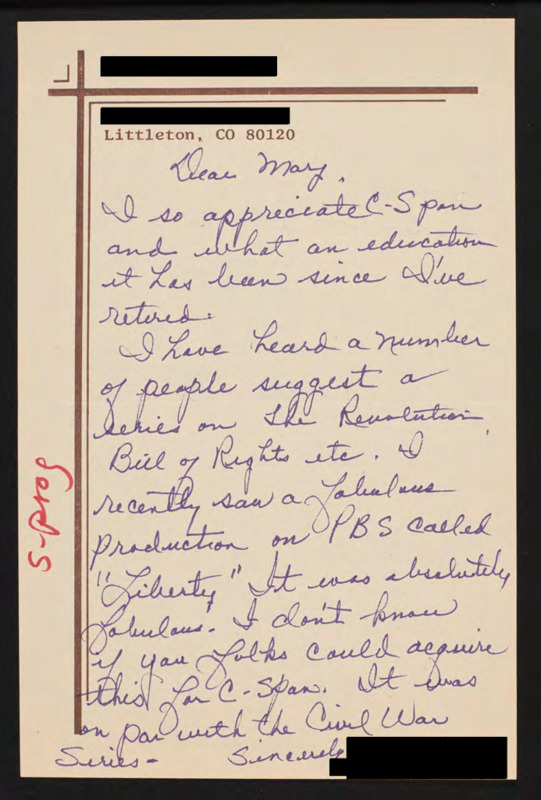 Littleton, CO 80120
Dear Mary,
I so appreciate C-Span
and what an education
it has been since I've
retired.
I have heard a number
of people suggest a
series on the Revolution
Bill of Rights etc. I
recently saw a fabulous
production on PBS called
"Liberty" It was absolutely
fabulous. I don't know
if you folks could acquire
this for C-Span. It was
on par with the Civil War
Series- Sincerely